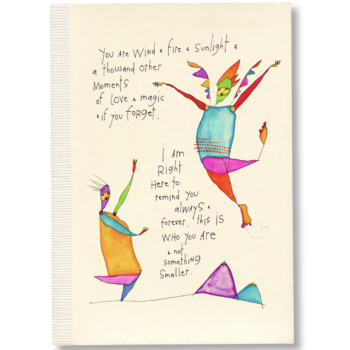 You are wind & fire & sunlight &
a thousand other
moments
of love & magic
& if you forget,
I am
Right
Here to
remind you
always &
forever, this is
who you are
& not
something
smaller.